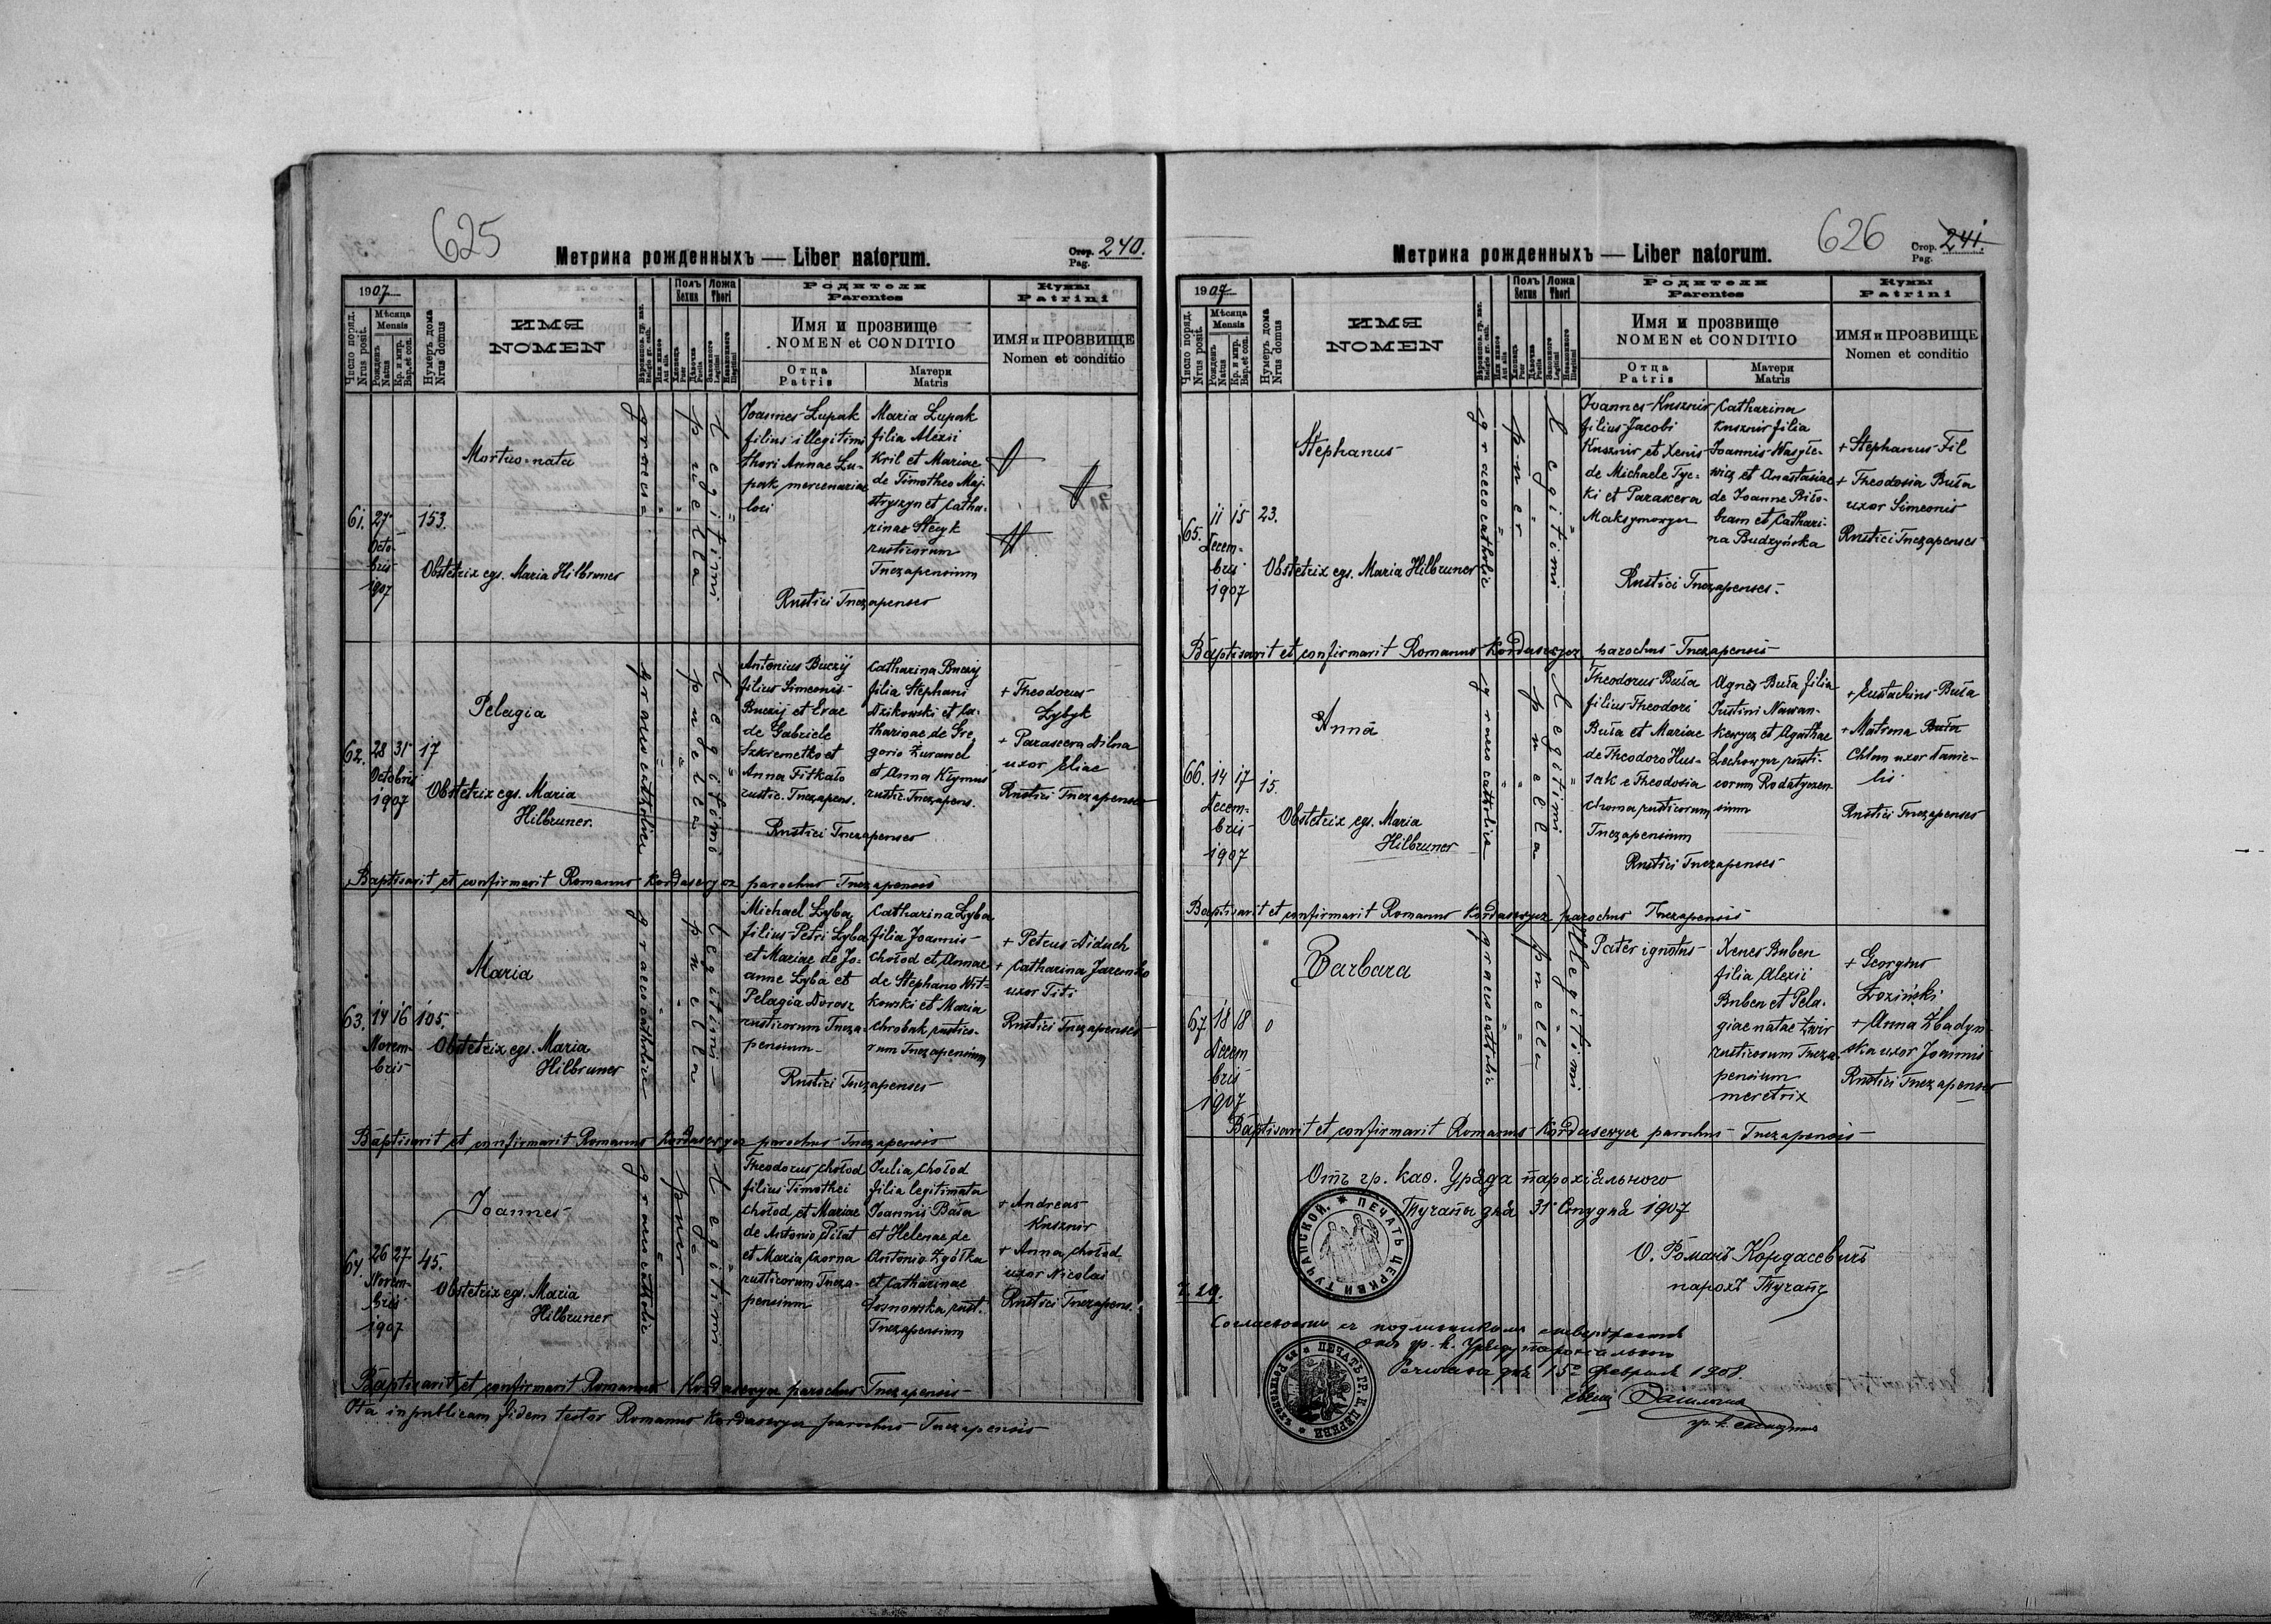 625
Метрика рожденныхъ — Liber natorum.
Стор. Pag. 240.
1907
Число поряд. Nrus posit.
Мѣсяца Mensis
Рожденъ Natus
Кр. и мир. Bap. et con.
Нумеръ дома Nrus domus
ИМЯ
NOMEN
Полъ Sexus
Ложа Thori
Родители
Parentes
Имя и прозвище
NOMEN et CONDITIO
Отца Patris
Матери Matris
Кумы
Patrini
ИМЯ и ПРОЗВИЩЕ
Nomen et conditio
61. 27 Octobris 1907
153.
Mortuo-nata
Obstetrix egs. Maria Hilbruner
puella
legitimi
Joannes Łupak
filius illegitimi
thori Annae Łu-
pak mercenariae
loci
Maria Łupak
filia Alexii
Kril et Mariae
de Timotheo Maj-
stryszyn et Catha-
rinae Stecyk
rusticorum
Tuczapensium
Rustici Tuczapenses
62. 28 31 Octobris 1907
17
Pelagia
Obstetrix egs. Maria
Hilbruner.
graeco catholica
puella
legitimi
Antonius Buczij
filius Simeonis
Buczij et Evae
de Gabriele
Szkremetko et
Anna Fitkało
rustic. Tuczapens.
Catharina Buczij
filia Stephani
Dzikowski et Ca-
tharinae de Gre-
gorio Żurawel
et Anna Klymus
rustic. Tuczapens.
Rustici Tuczapenses
+ Theodorus
Łybyk
+ Parasceva Dilna
uxor Eliae
Rustici Tuczapenses
Baptisavit et confirmavit Romanus Kordasewycz parochus Tuczapensis
63. 14 16 Novembris
105.
Maria
Obstetrix egs. Maria
Hilbruner
graeco catholicae
puella
legitimi
Michael Łyba
filius Petri Łyba
et Mariae de Jo-
anne Łyba et
Pelagia Dorosz
rusticorum Tucza-
pensium
Catharina Łyba
filia Joannis
Chołod et Annae
de Stephano Wit-
kowski et Maria
Chrobak rustico-
rum Tuczapensium
Rustici Tuczapenses
+ Petrus Diduch
+ Catharina Jaremko
uxor Titi
Rustici Tuczapenses
Baptisavit et confirmavit Romanus Kordasewycz parochus Tuczapensis
64. 26 27 Novembris 1907
45.
Joannes
Obstetrix egs. Maria
Hilbruner
graeco catholic
puer
legitimi
Theodorus Chołod
filius Timothei
Chołod et Mariae
de Antonio Piłat
et Maria Czorna
rusticorum Tucza-
pensium
Julia Chołod
filia legitimata
Joannis Bała
et Helenae de
Antonio Zgółka
et Catharinae
Sosnowska rust.
Tuczapensium
+ Andreas
Kusznir
+ Anna Chołod
uxor Nicolai
Rustici Tuczapens.
Baptisavit et confirmavit Romanus Kordasewycz parochus Tuczapensis
Ita in publicam fidem testor Romanus Kordasewycz parochus Tuczapensis
626
Метрика рожденныхъ — Liber natorum.
Стор. Pag. 241.
1907
Число поряд. Nrus posit.
Мѣсяца Mensis
Рожденъ Natus
Кр. и мир. Bap. et con.
Нумеръ дома Nrus domus
ИМЯ
NOMEN
Полъ Sexus
Ложа Thori
Родители
Parentes
Имя и прозвище
NOMEN et CONDITIO
Отца Patris
Матери Matris
Кумы
Patrini
ИМЯ и ПРОЗВИЩЕ
Nomen et conditio
65. 11 15 Decembris 1907
23.
Stephanus
Obstetrix egs. Maria Hilbruner
graeco catholic
puer
legitimi
Joannes Kusznir
filius Jacobi
Kusznir et Xenis
de Michaele Tyc-
ki et Parascera
Maksymowycz
Catharina
Kusznir filia
Joannis Wasyle-
wicz et Anastasiae
de Joanne Biło-
bram et Cathari-
na Budzyńska
Rustici Tuczapenses.
+ Stephanus Fil
+ Theodosia Buła
uxor Simeonis
Rustici Tuczapenses
Baptisavit et confirmavit Romanus Kordasewycz parochus Tuczapensis
66. 14 17 Decembris 1907
15.
Anna
Obstetrix egs. Maria
Hilbruner
graeco catholica
puella
legitimi
Theodorus Buła
filius Theodori
Buła et Mariae
de Theodoro Hus-
sak e Theodosia
Choma rusticorum
Tuczapensium
Agnes Buła filia
Justini Nawan-
kewycz et Agathae
Lechowycz rusti-
corum Rodatyczen-
sium
Rustici Tuczapenses
+ Eustachius Buła
+ Matrona Buła
Chlan uxor Danie-
lis
Rustici Tuczapenses
Baptisavit et confirmavit Romanus Kordasewycz parochus Tuczapensis
67. 18 18 Decembris 1907
0
Barbara
graeco catholic
puella
illegitimi
Pater ignotus
Xenes Buben
filia Alexii
Buben et Pela-
giae natae Żwir
rusticorum Tucza-
pensium
meretrix
+ Georgius
Łoziński
+ Anna Zbadyn-
ska uxor Joannis
Rustici Tuczapenses
Baptisavit et confirmavit Romanus Kordasewycz parochus Tuczapensis
Отъ гр. каѳ. Уряда парохіального
Тучапы дня 31 Студня 1907
О. Романъ Кордасевичъ
парохъ Тучапъ
ПЕЧАТЬ ЦЕРКВИ ТУЧАПСКОЙ.
Ч. 29.
дня 15 Февраля 1908.
ПЕЧАТЬ ГР. К. ЦЕРКВИ